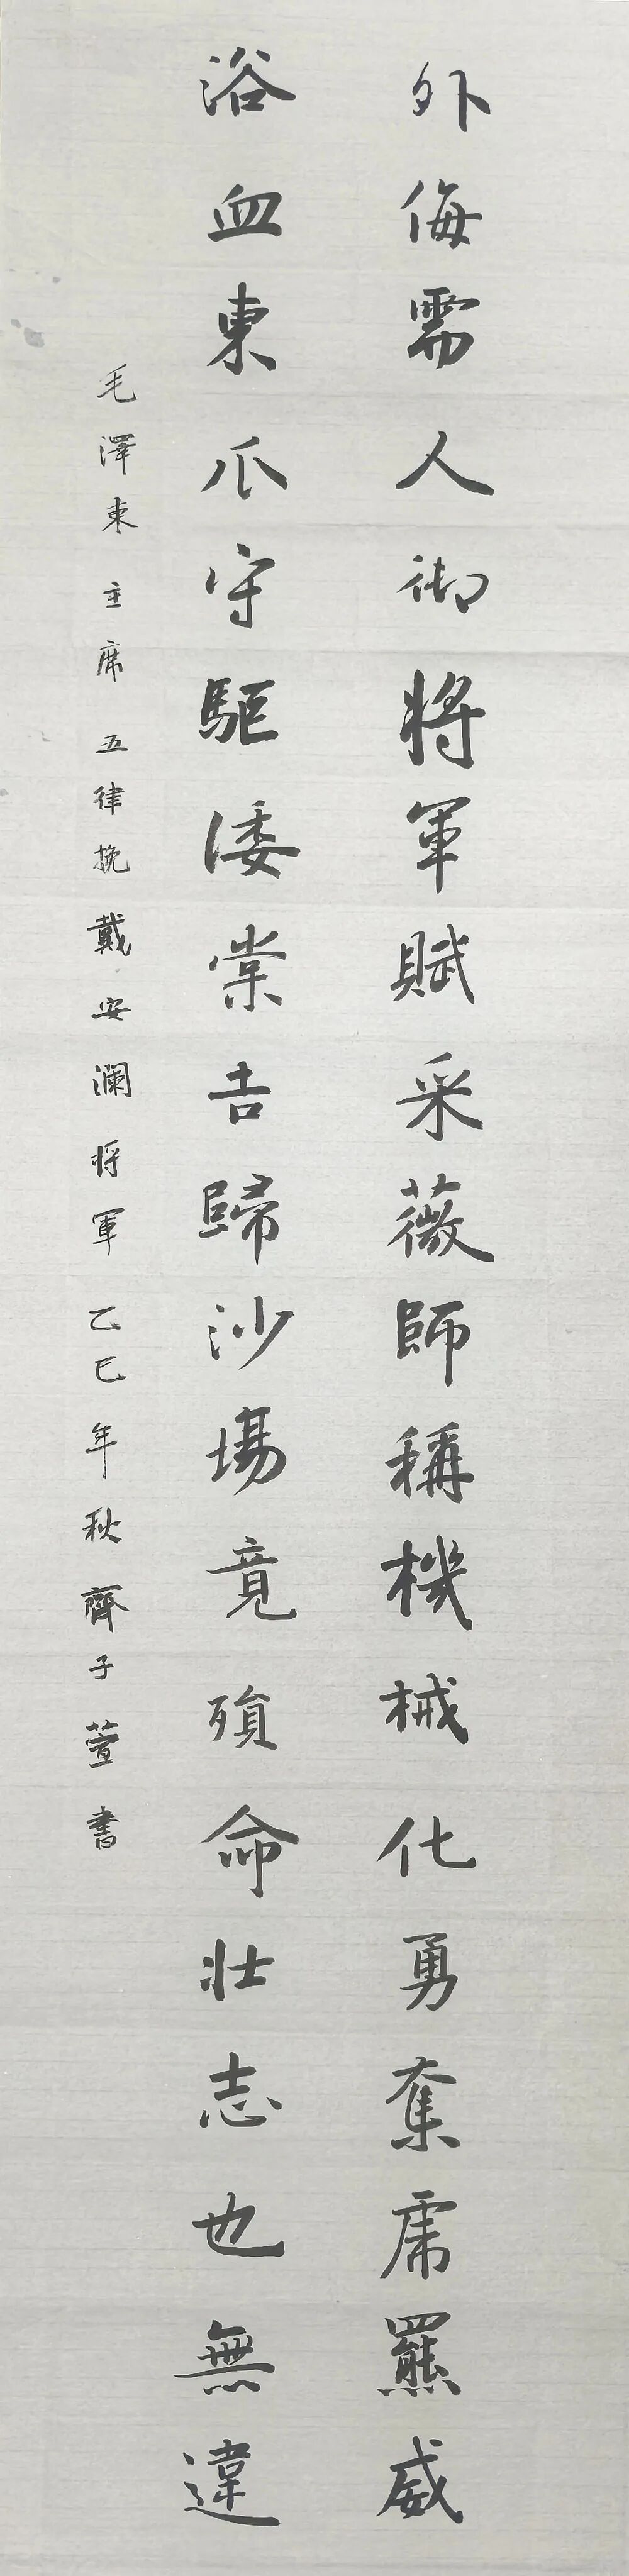 外侮需人御將軍賦采薇師稱機械化勇奪虎羆威
浴血東瓜守驅倭棠吉歸沙場竟殞命壯志也無違
毛澤東主席五律挽戴安瀾将軍乙巳年秋齊子萱書